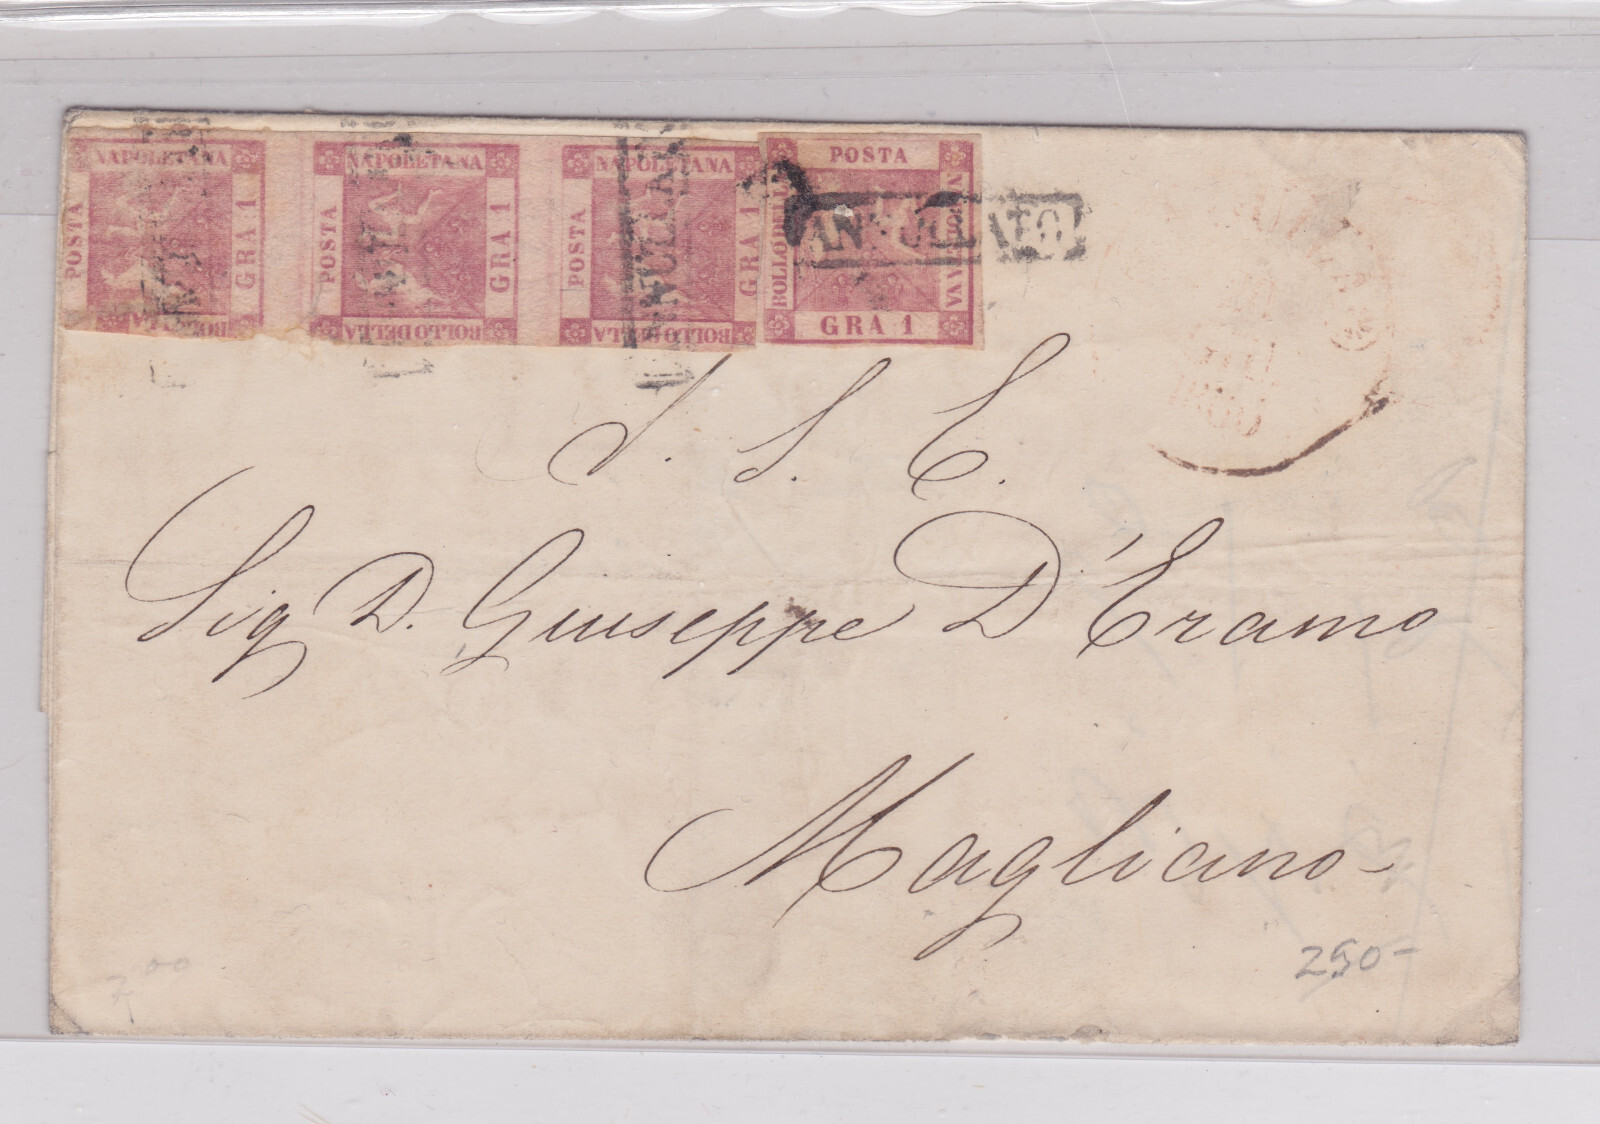 NAPOLETANA NAPOLETANA NAPOLETANA POSTA
POSTA GRA 1 POSTA GRA 1 POSTA GRA 1 BOLLO DELLA
BOLLO DELLA BOLLO DELLA GRA 1
ANNULLATO
S. S. E.
Sig D. Giuseppe D'Eramo
Magliano
250-